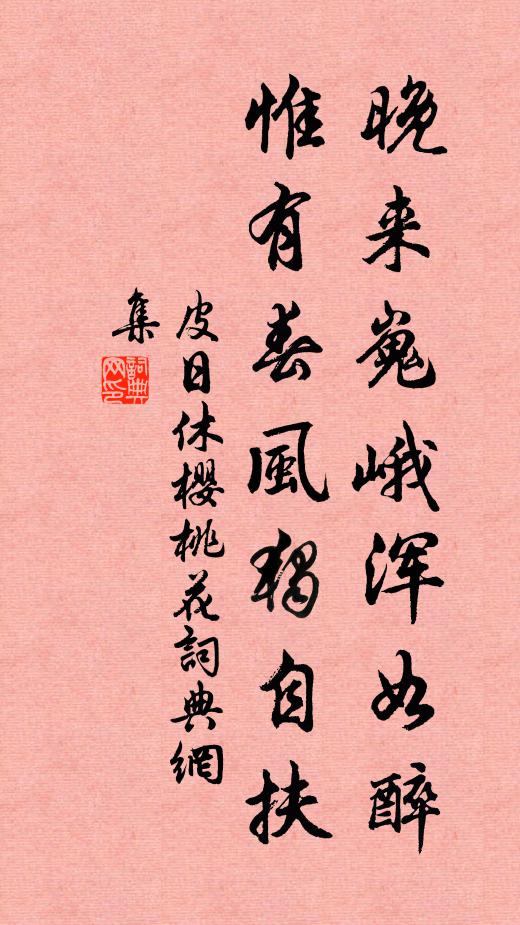 晚来嵬峨浑如醉
惟有春風獨自扶
皮日休櫻桃花詞典網
集
詞典
网印